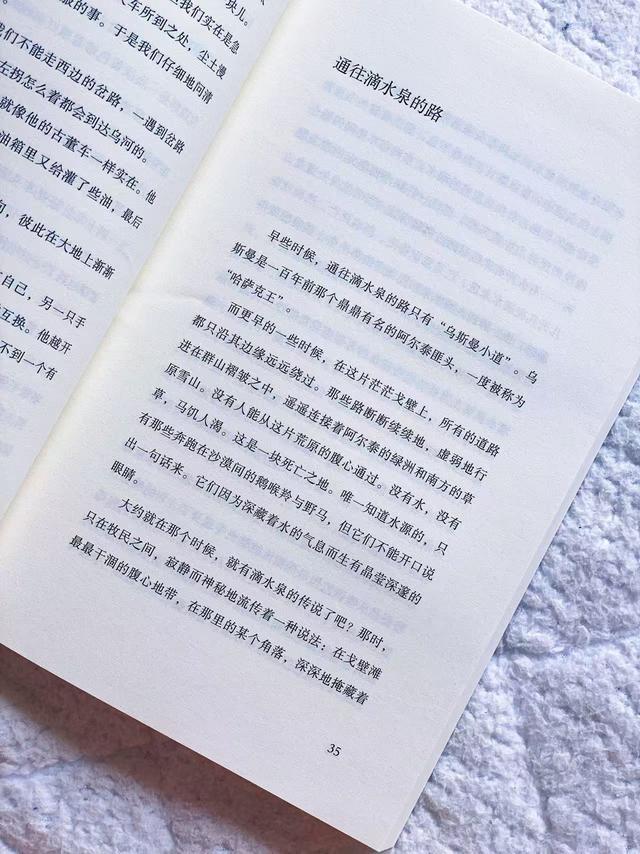 央儿。
车所到之处，尘土漫
我们实在是急
服的事。于是我们仔细地问清
们不能走西边的岔路，一遇到岔路
左拐怎么着都会到达乌河的。
就像他的古董车一样实在。他
油箱里又给灌了些油，最后
句，彼此在大地上渐渐
自己，另一只手
互换。他越开
不到一个有
通往滴水泉的路
早些时候，通往滴水泉的路只有“乌斯曼小道”。乌
斯曼是一百年前那个鼎鼎有名的阿尔泰匪头，一度被称为
“哈萨克王”。
而更早的一些时候，在这片茫茫戈壁上，所有的道路
都只沿其边缘远远绕过。那些路断断续续地，虚弱地行
进在群山褶皱之中，遥遥连接着阿尔泰的绿洲和南方的草
原雪山。没有人能从这片荒原的腹心通过。没有水，没有
草，马饥人渴。这是一块死亡之地。唯一知道水源的，只
有那些奔跑在沙漠间的鹅喉羚与野马，但它们不能开口说
出一句话来。它们因为深藏着水的气息而生有晶莹深邃的
眼睛。
大约就在那个时候，就有滴水泉的传说了吧？那时，
只在牧民之间，寂静而神秘地流传着一种说法：在戈壁滩
最最干涸的腹心地带，在那里的某个角落，深深地掩藏着
35